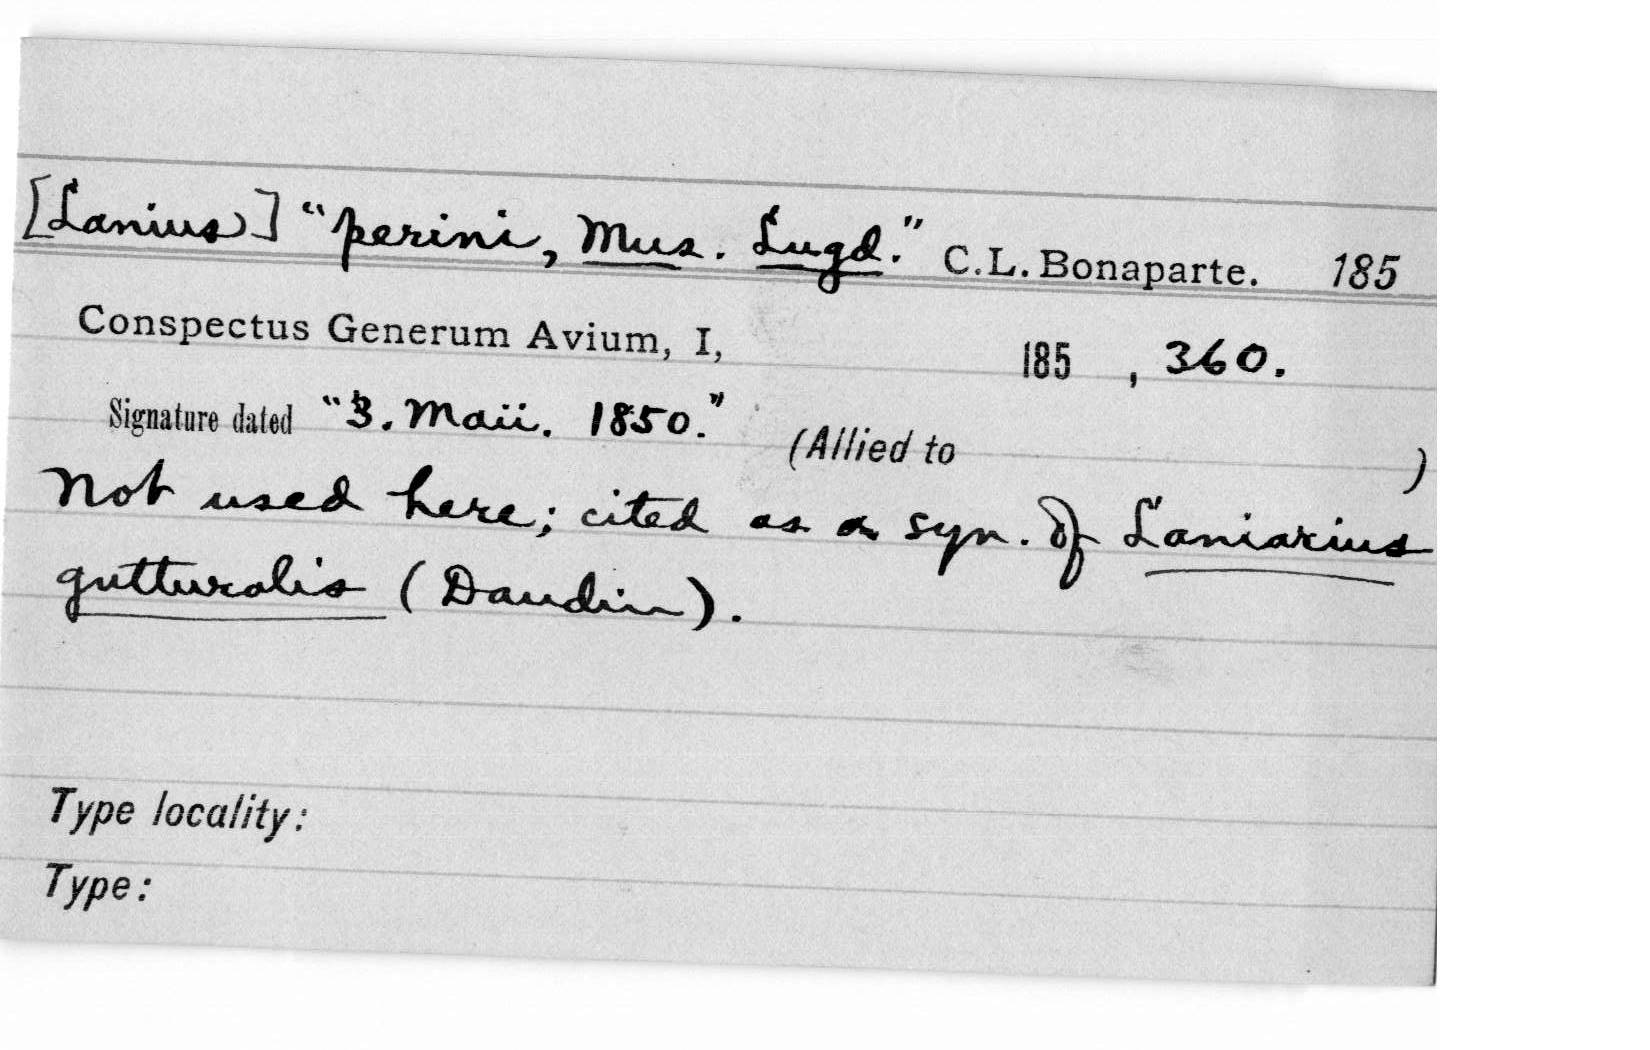 [Lanius] "perini, Mus. Lugd." C.L. Bonaparte. 185
Conspectus Generum Avium, I, 185 , 360.
Signature dated "3. Maii. 1850." (Allied to )
Not used here; cited as a syn. of Laniarius
gutturalis (Daudin).
Type locality:
Type: